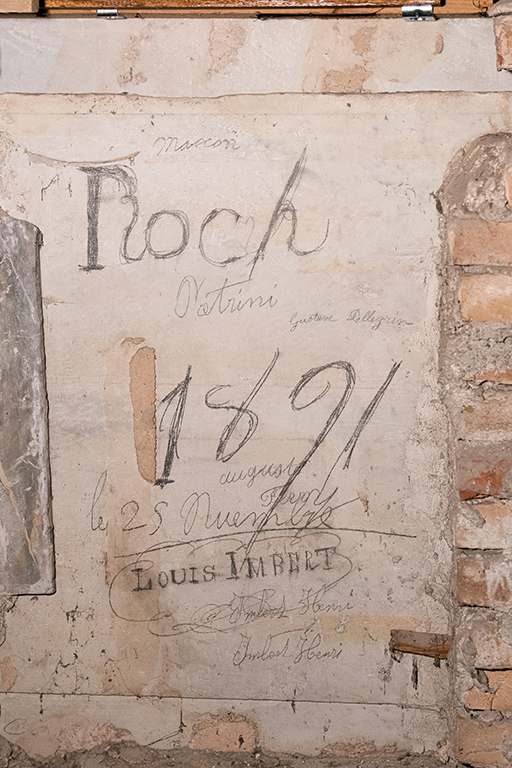 Maccon
Roch
Patrini
Gustave Pellegrin
1891
august
Ferm
le 25 Nuembre
LOUIS IMBERT
Imbert Henri
Imbert Henri